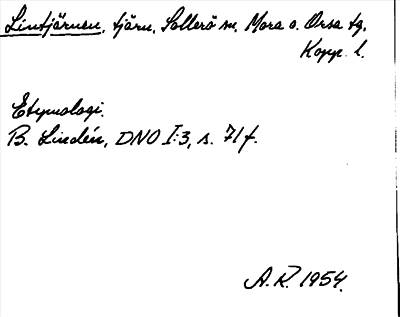 Lintjärnen, tjärn, Sollerö sn, Mora o. Orsa tg,
Kopp. l.
Etymologi.
B. Lindén, DNO I:3, s. 71 f.
A.R. 1954.